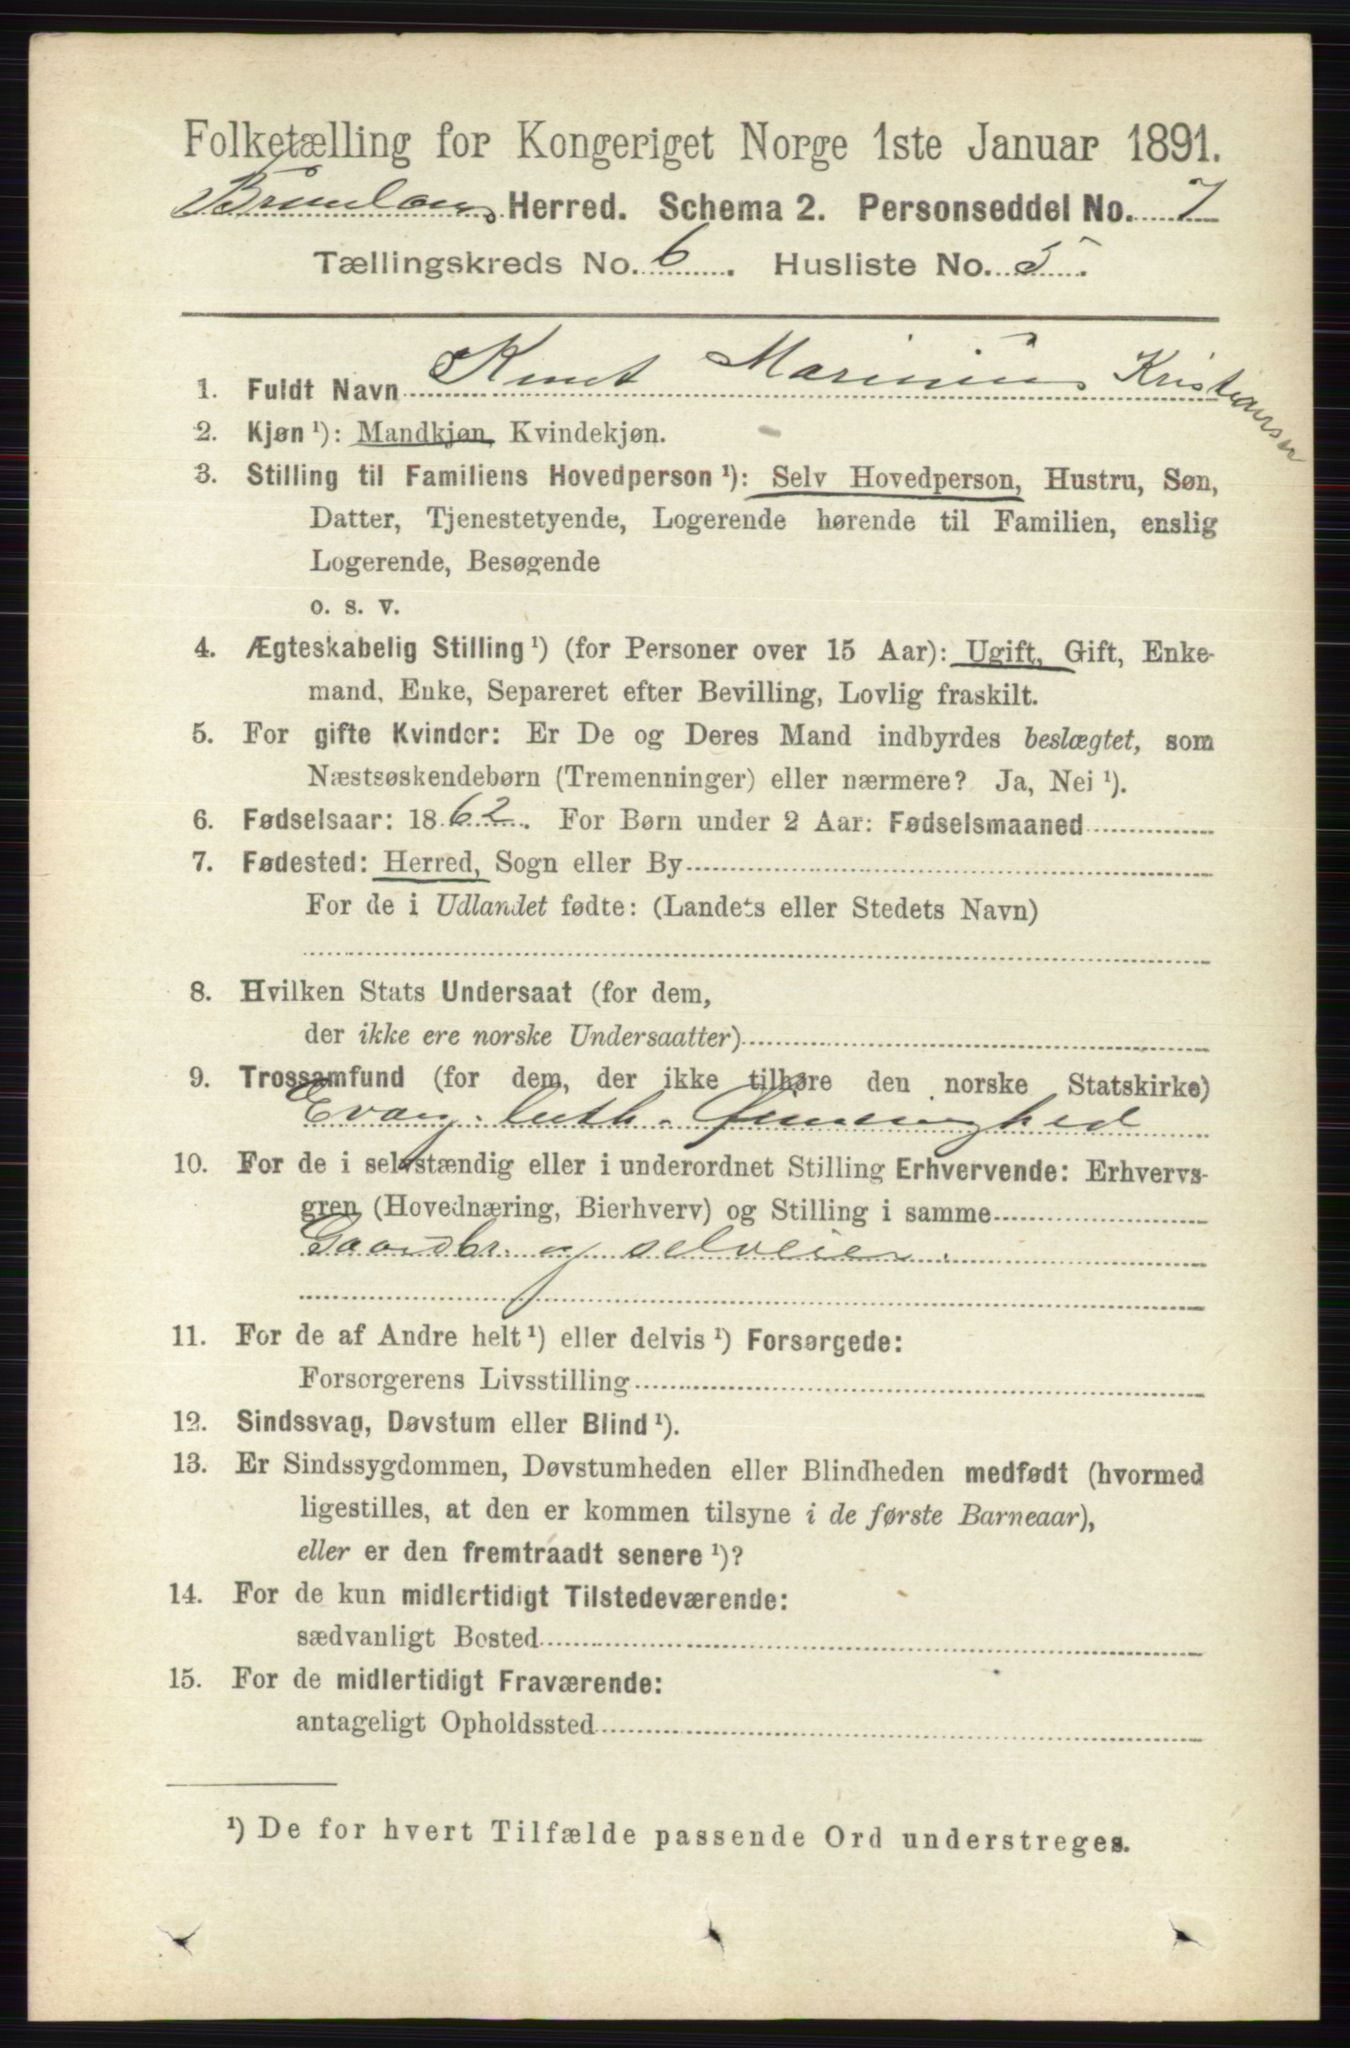 Folketælling for Kongeriget Norge 1ste Januar 1891.
Brunlanes Herred. Schema 2. Personseddel No. 7
Tællingskreds No. 6. Husliste No. 5.
1. Fuldt Navn Knut Marinius Kristiansen
2. Kjøn ¹): Mandkjøn, Kvindekjøn.
3. Stilling til Familiens Hovedperson ¹): Selv Hovedperson, Hustru, Søn,
Datter, Tjenestetyende, Logerende hørende til Familien, enslig
Logerende, Besøgende
o. s. v.
4. Ægteskabelig Stilling ¹) (for Personer over 15 Aar): Ugift, Gift, Enke-
mand, Enke, Separeret efter Bevilling, Lovlig fraskilt.
5. For gifte Kvinder: Er De og Deres Mand indbyrdes beslægtet, som
Næstsøskendebørn (Tremenninger) eller nærmere? Ja, Nei ¹).
6. Fødselsaar: 1862. For Børn under 2 Aar: Fødselsmaaned
7. Fødested: Herred, Sogn eller By
For de i Udlandet fødte: (Landets eller Stedets Navn)
8. Hvilken Stats Undersaat (for dem,
der ikke ere norske Undersaatter)
9. Trossamfund (for dem, der ikke tilhøre den norske Statskirke)
Evang. luth.
10. For de i selvstændig eller i underordnet Stilling Erhvervende: Erhvervs-
gren (Hovednæring, Bierhverv) og Stilling i samme
Gaardbr. og selveier.
11. For de af Andre helt ¹) eller delvis ¹) Forsørgede:
Forsørgerens Livsstilling
12. Sindssvag, Døvstum eller Blind ¹).
13. Er Sindssygdommen, Døvstumheden eller Blindheden medfødt (hvormed
ligestilles, at den er kommen tilsyne i de første Barneaar),
eller er den fremtraadt senere ¹)?
14. For de kun midlertidigt Tilstedeværende:
sædvanligt Bosted
15. For de midlertidigt Fraværende:
antageligt Opholdssted
¹) De for hvert Tilfælde passende Ord understreges.